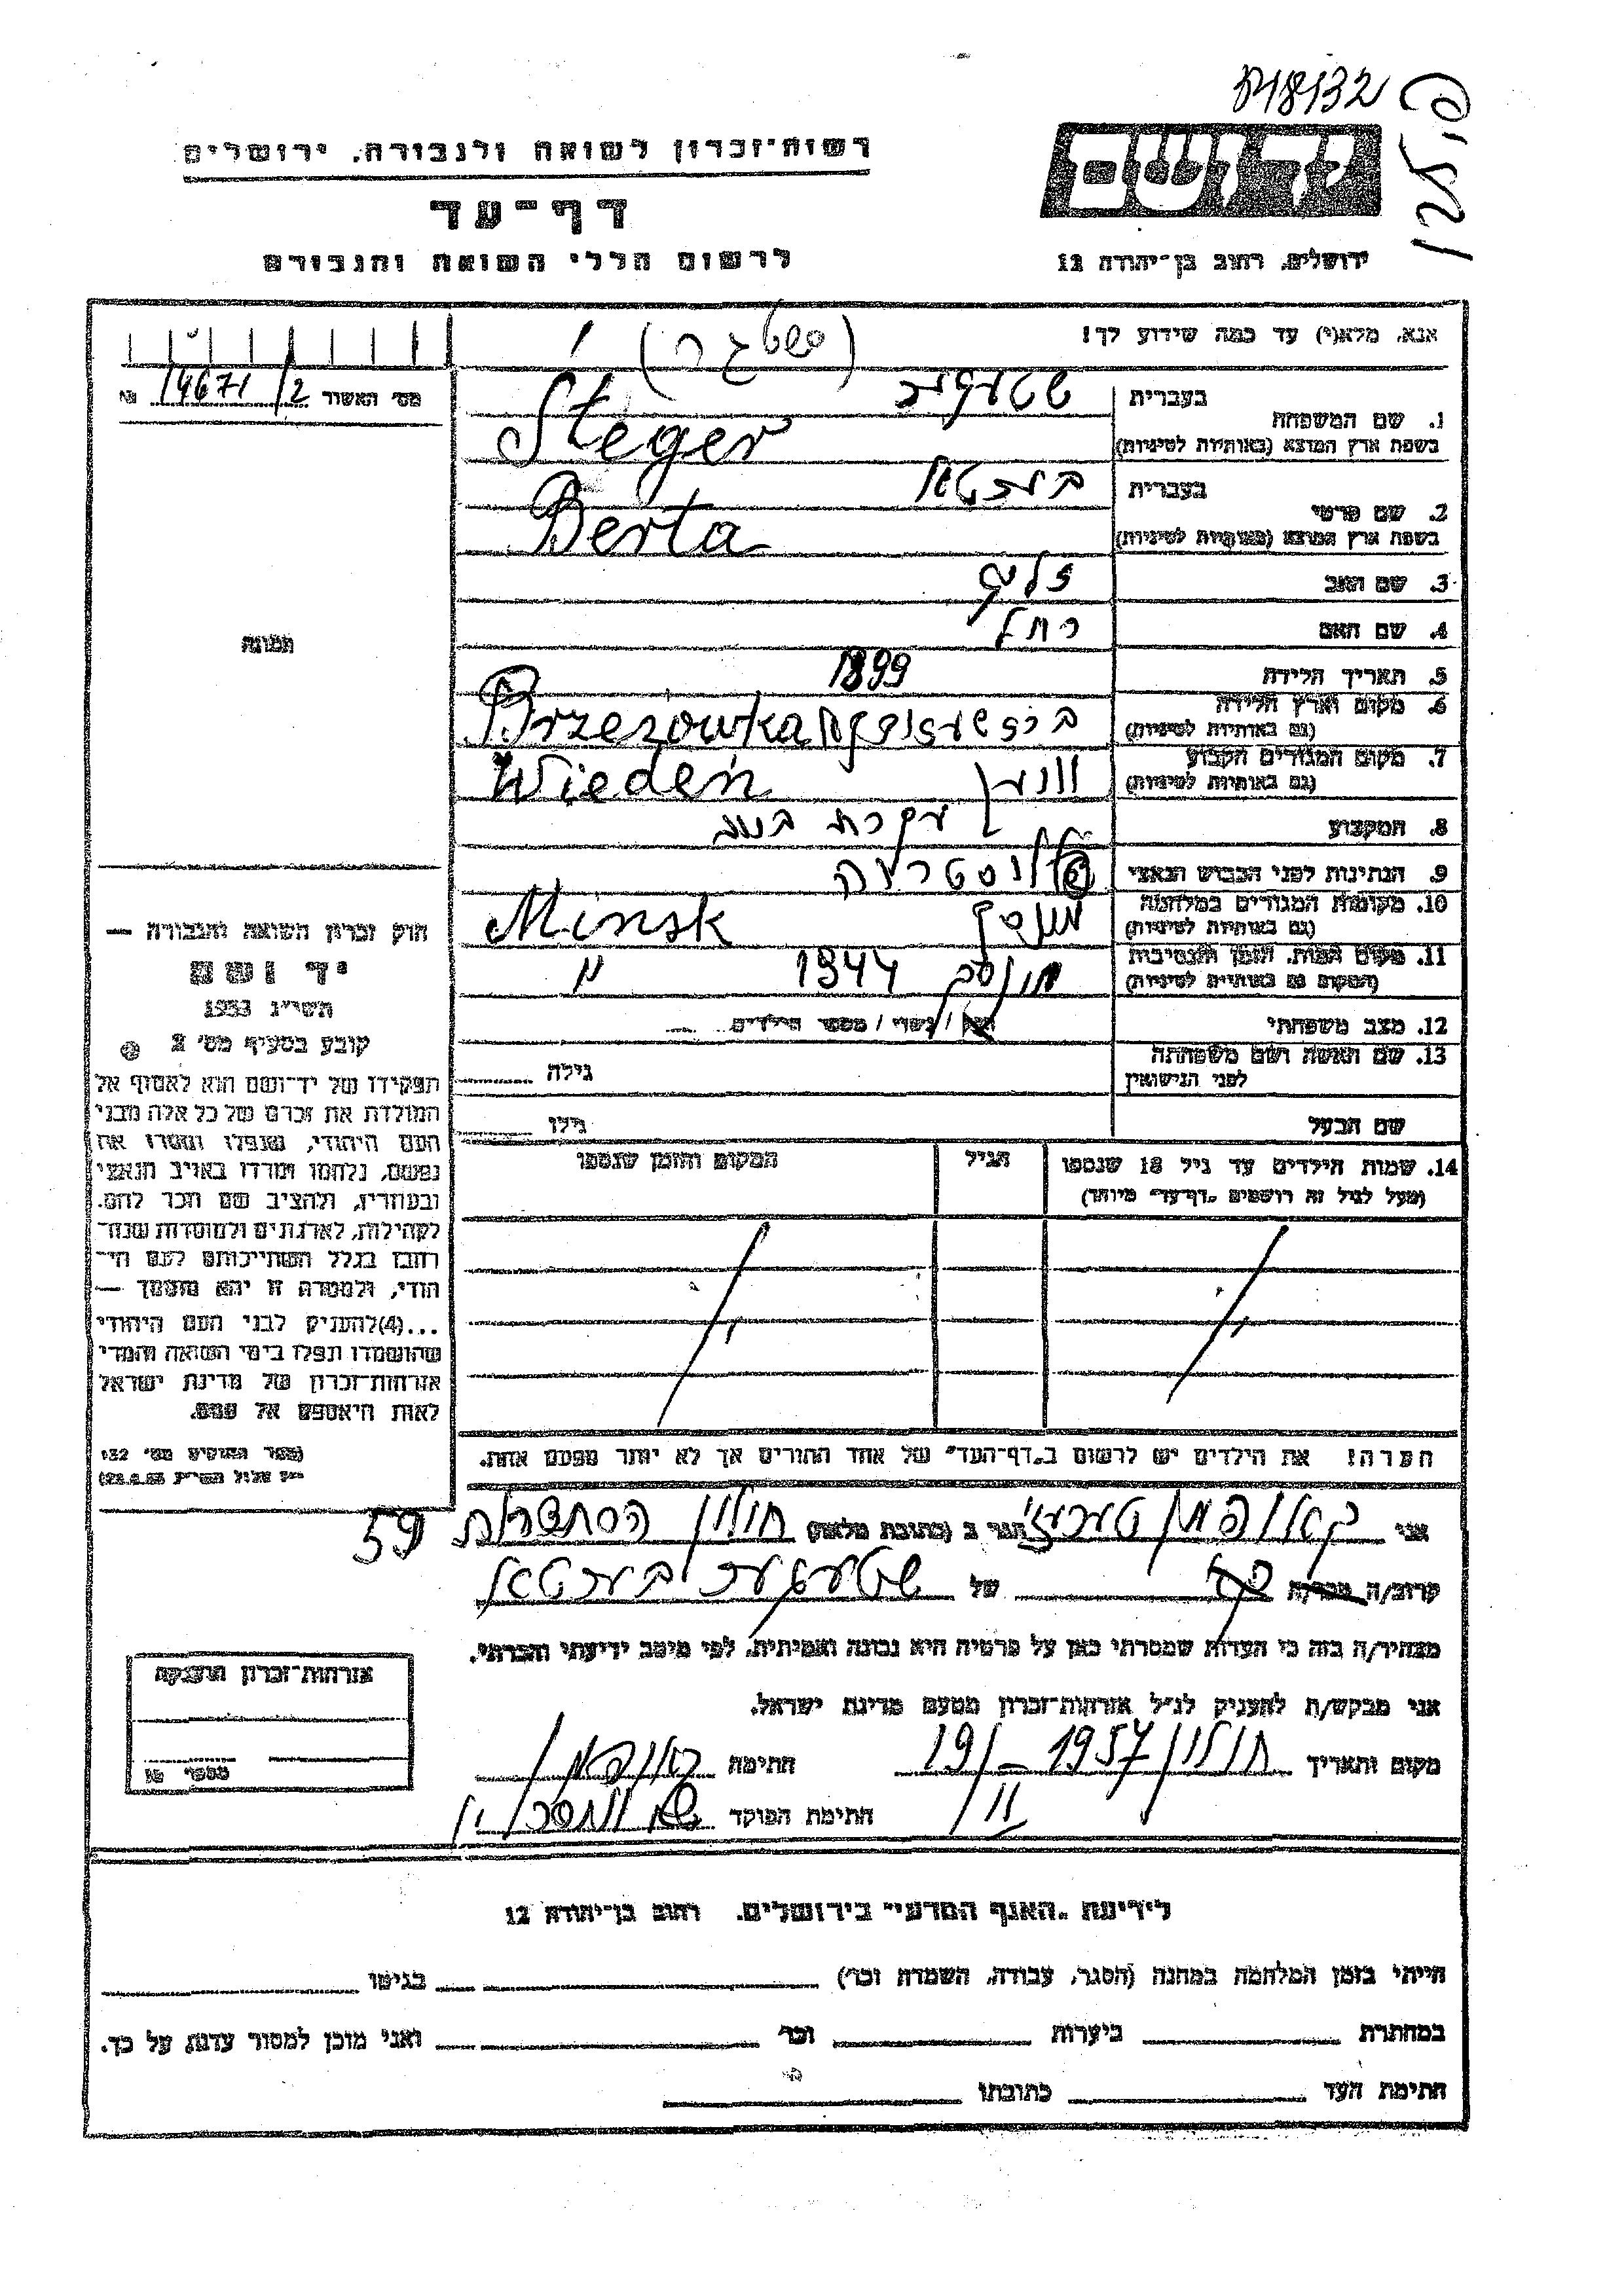 718132
רשות-זכרון לשואה ולגבורה, ירושלים
דף-עד
לרשום חללי השואה והגבורה
יד ושם
ירושלים, רחוב בן-יהודה 12
אנא, מלא(י) עד כמה שידוע לך!
(שטגר)
מס' האשור 14671/2 №
1. שם המשפחה
בעברית שטעגער
בשפת ארץ המוצא (באותיות לטיניות) Steger
2. שם פרטי
בעברית בערטא
בשפת ארץ המוצא (באותיות לטיניות) Berta
3. שם האב
4. שם האם רחל
5. תאריך הלידה 1899
6. מקום וארץ הלידה
(גם באותיות לטיניות) Brzezówka
7. מקום המגורים הקבוע
(גם באותיות לטיניות) ווין Wiedeń
8. המקצוע עקרת בית
9. הנתינות לפני הכבוש הנאצי אוסטריה
10. מקומות המגורים במלחמה
(גם באותיות לטיניות) מינסק Minsk
11. מקום המות, הזמן והנסיבות
(המקום גם באותיות לטיניות) מינסק 1944 "
12. מצב משפחתי רווק / נשוי / מספר הילדים
13. שם האשה ושם משפחתה
לפני הנישואין גילה
שם הבעל גילו
14. שמות הילדים עד גיל 18 שנספו
(מעל לגיל זה רושמים "דף-עד" מיוחד)
הגיל
המקום והזמן שנספו
הערה! את הילדים יש לרשום ב"דף-העד" של אחד ההורים אך לא יותר מפעם אחת.
תמונה
חוק זכרון השואה והגבורה —
יד ושם
תשי"ג 1953
קובע בסעיף מס' 2
תפקידו של יד-ושם הוא לאסוף אל
המולדת את זכרם של כל אלה מבני
העם היהודי, שנפלו ומסרו את
נפשם, נלחמו ומרדו באויב הנאצי
ובעוזריו, ולהציב שם וזכר להם,
לקהילות, לארגונים ולמוסדות שנח-
רבו בגלל השתייכותם לעם הי-
הודי, ולמטרה זו יהא מוסמך —
...(4) להעניק לבני העם היהודי
שהושמדו ונפלו בימי השואה והמרי
אזרחות-זכרון של מדינת ישראל
לאות היאספם אל עמם.
(ספר החוקים מס' 132
אני קאופמן טערעזי הגר ב (כתובת מלאה) חולון הסתדרות 59
קרוב/ה מכר/ה של שטעגער בערטא
מצהיר/ה בזה כי העדות שמסרתי כאן על פרטיה היא נכונה ואמיתית, לפי מיטב ידיעתי והכרתי.
אני מבקש/ת להעניק לנ"ל אזרחות-זכרון מטעם מדינת ישראל.
מקום ותאריך חולון 19/II – 1957 חתימה קאופמן
חתימת הפוקד
אזרחות-זכרון הוענקה
מספר №
לידיעת "האגף המדעי" בירושלים, רחוב בן-יהודה 12
הייתי בזמן המלחמה במחנה (הסגר, עבודה, השמדה וכו') בגיטו
במחתרת ביערות וכו' ואני מוכן למסור עדות על כך.
חתימת העד כתובתו